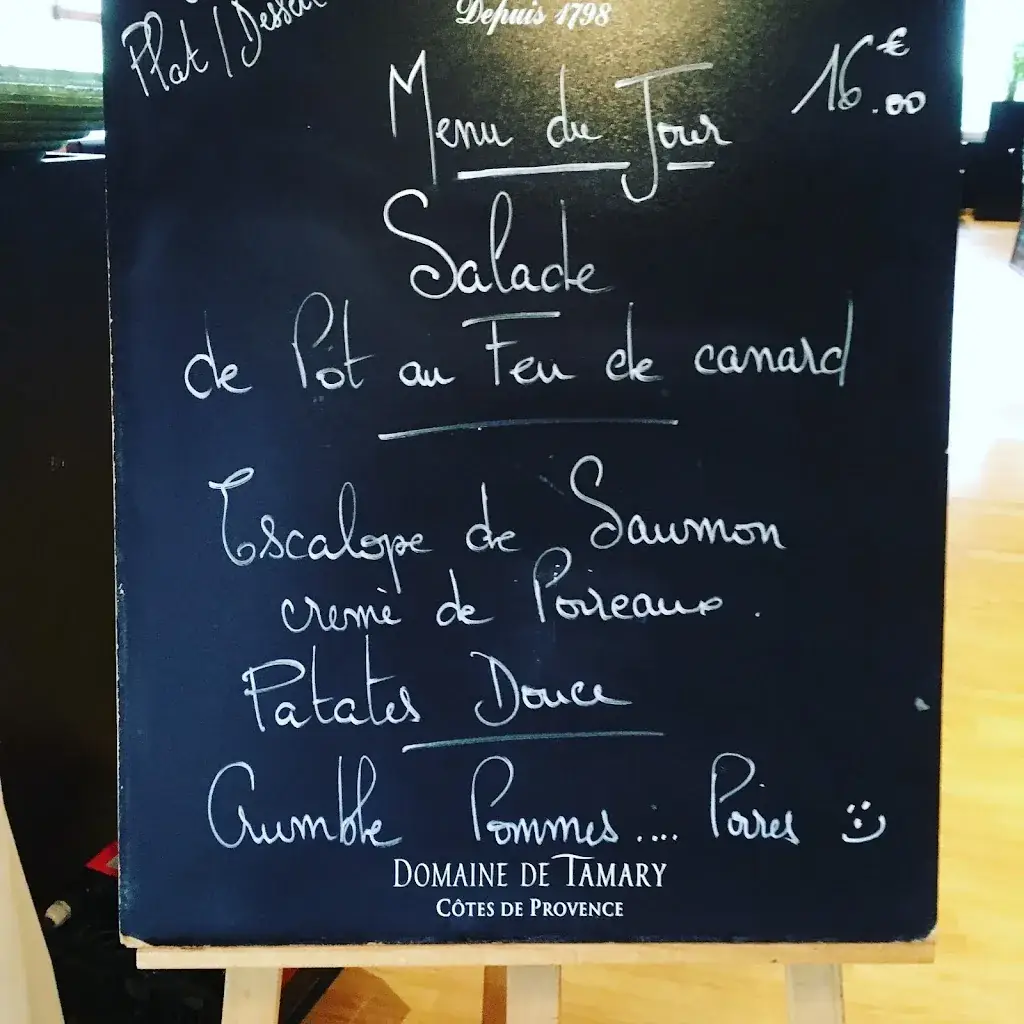 Depuis 1798
Plat / Dessert
Menu du Jour
16.00€
Salade
de Pôt au Feu de canard
Escalope de Saumon
cremè de Poireaux.
Patates Douce
Crumble Pommes.... Poires :)
DOMAINE DE TAMARY
CÔTES DE PROVENCE